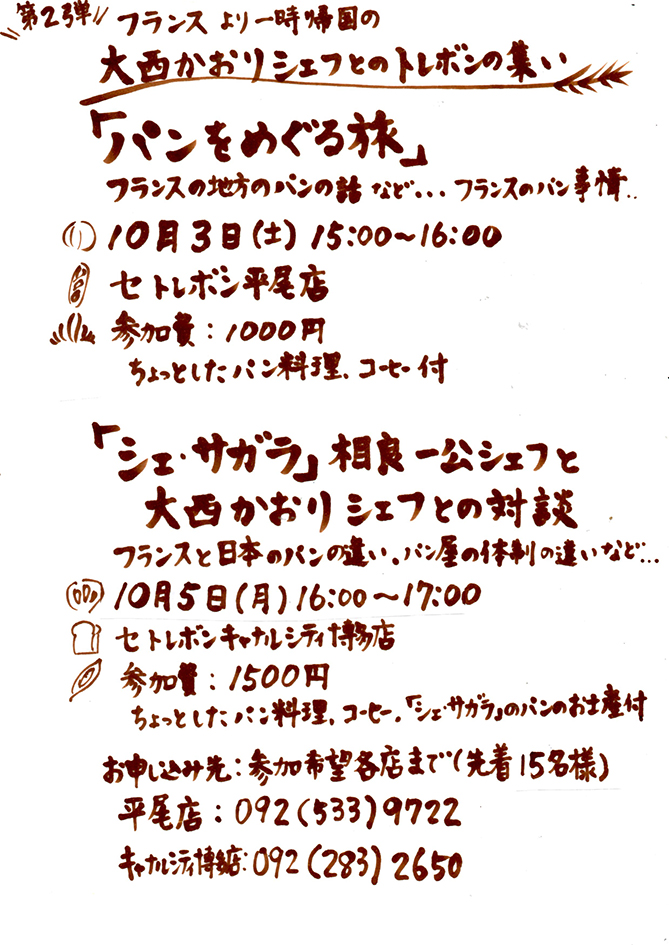 第2弾!!
フランスより一時帰国の
大西かおりシェフとのトレボンの集い
「パンをめぐる旅」
フランスの地方のパンの話など... フランスのパン事情..
10月3日(土) 15:00~16:00
セトレボン平尾店
参加費:1000円
ちょっとしたパン料理、コーヒー付
「シェ・サガラ」相良一公シェフと
大西かおりシェフとの対談
フランスと日本のパンの違い、パン屋の体制の違いなど...
10月5日(月) 16:00~17:00
セトレボンキャナルシティ博多店
参加費:1500円
ちょっとしたパン料理、コーヒー、「シェ・サガラ」のパンのお土産付
お申し込み先:参加希望各店まで(先着15名様)
平尾店:092(533)9722
キャナルシティ博多店:092(283)2650